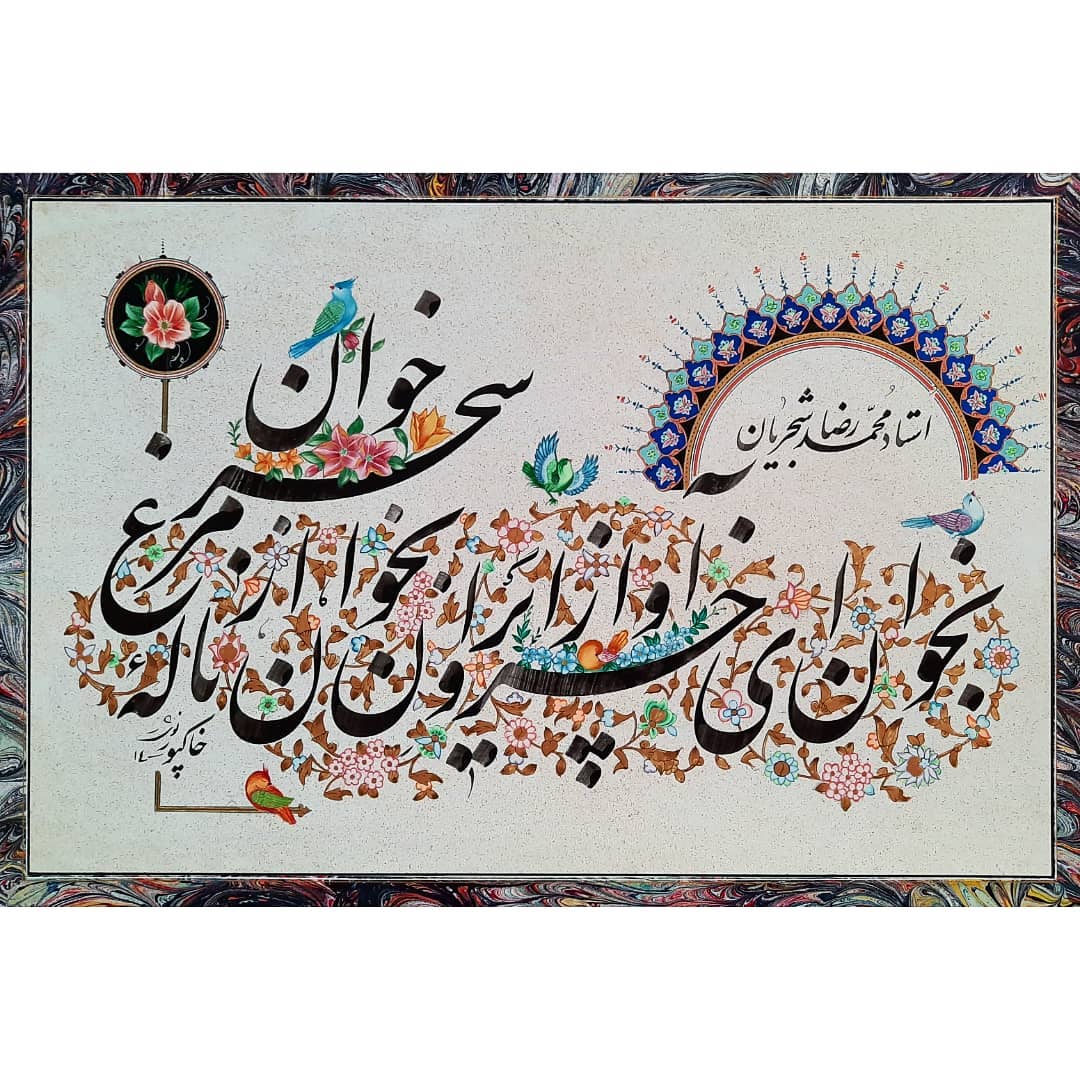 استاد محمدرضا شجریان
بخوان ای خسرو آواز ایران
بخوان از نالهٔ مرغ سحر خوان
خاکپور